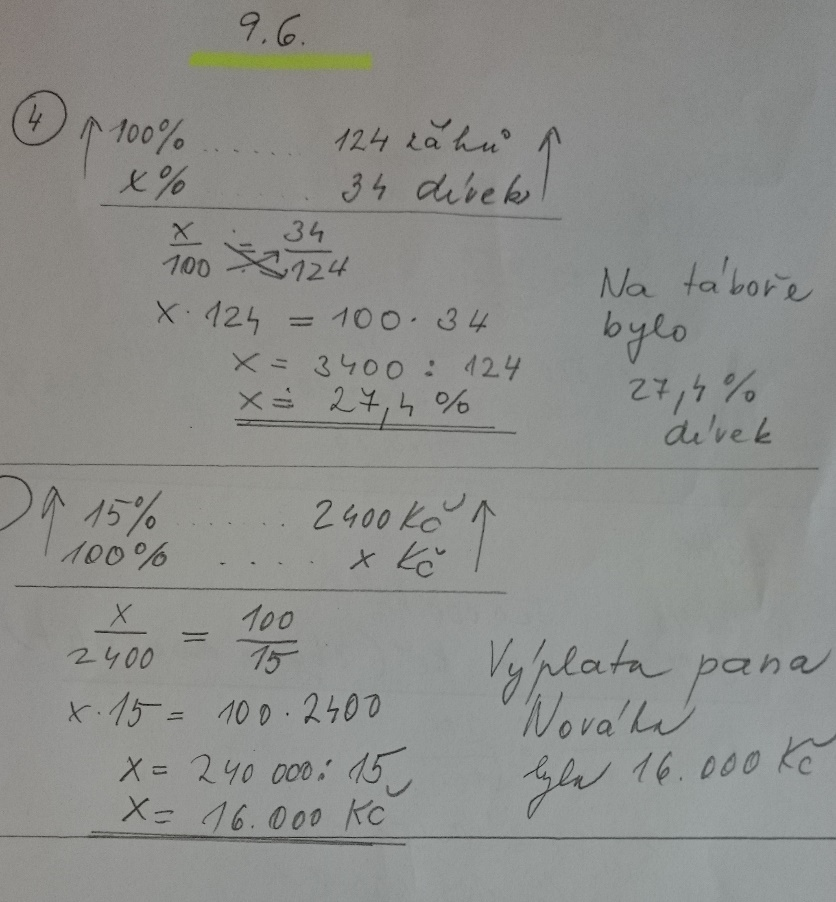 9.6.
4
↑ 100% ........ 124 žáků ↑
x% ........ 34 dívek
x/100 = 34/124
x · 124 = 100 · 34
x = 3400 : 124
x ≐ 27,4 %
Na táboře
bylo
27,4 %
dívek
↑ 15% ........ 2400 Kč ↑
100% .... x Kč
x/2400 = 100/15
x · 15 = 100 · 2400
x = 240 000 : 15
x = 16.000 Kč
Výplata pana
Nováka
byla 16.000 Kč